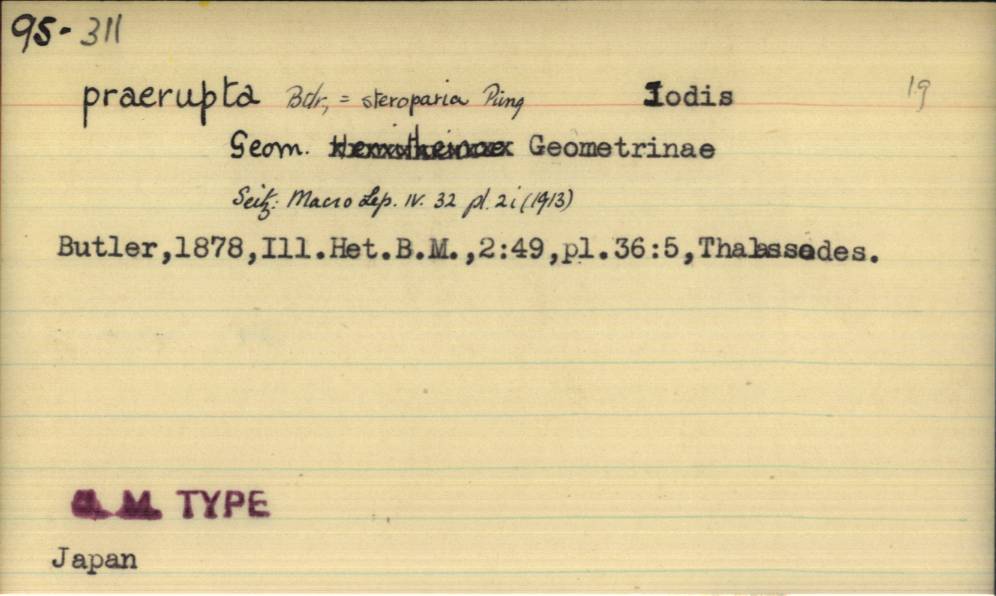 95-311
praerupta Btlr, = steroparia Püng Iodis 19
Geom. Hemitheinae Geometrinae
Seitz: Macro Lep. IV. 32 pl. 2i (1913)
Butler,1878,Ill.Het.B.M.,2:49,pl.36:5,Thalassodes.
B. M. TYPE
Japan